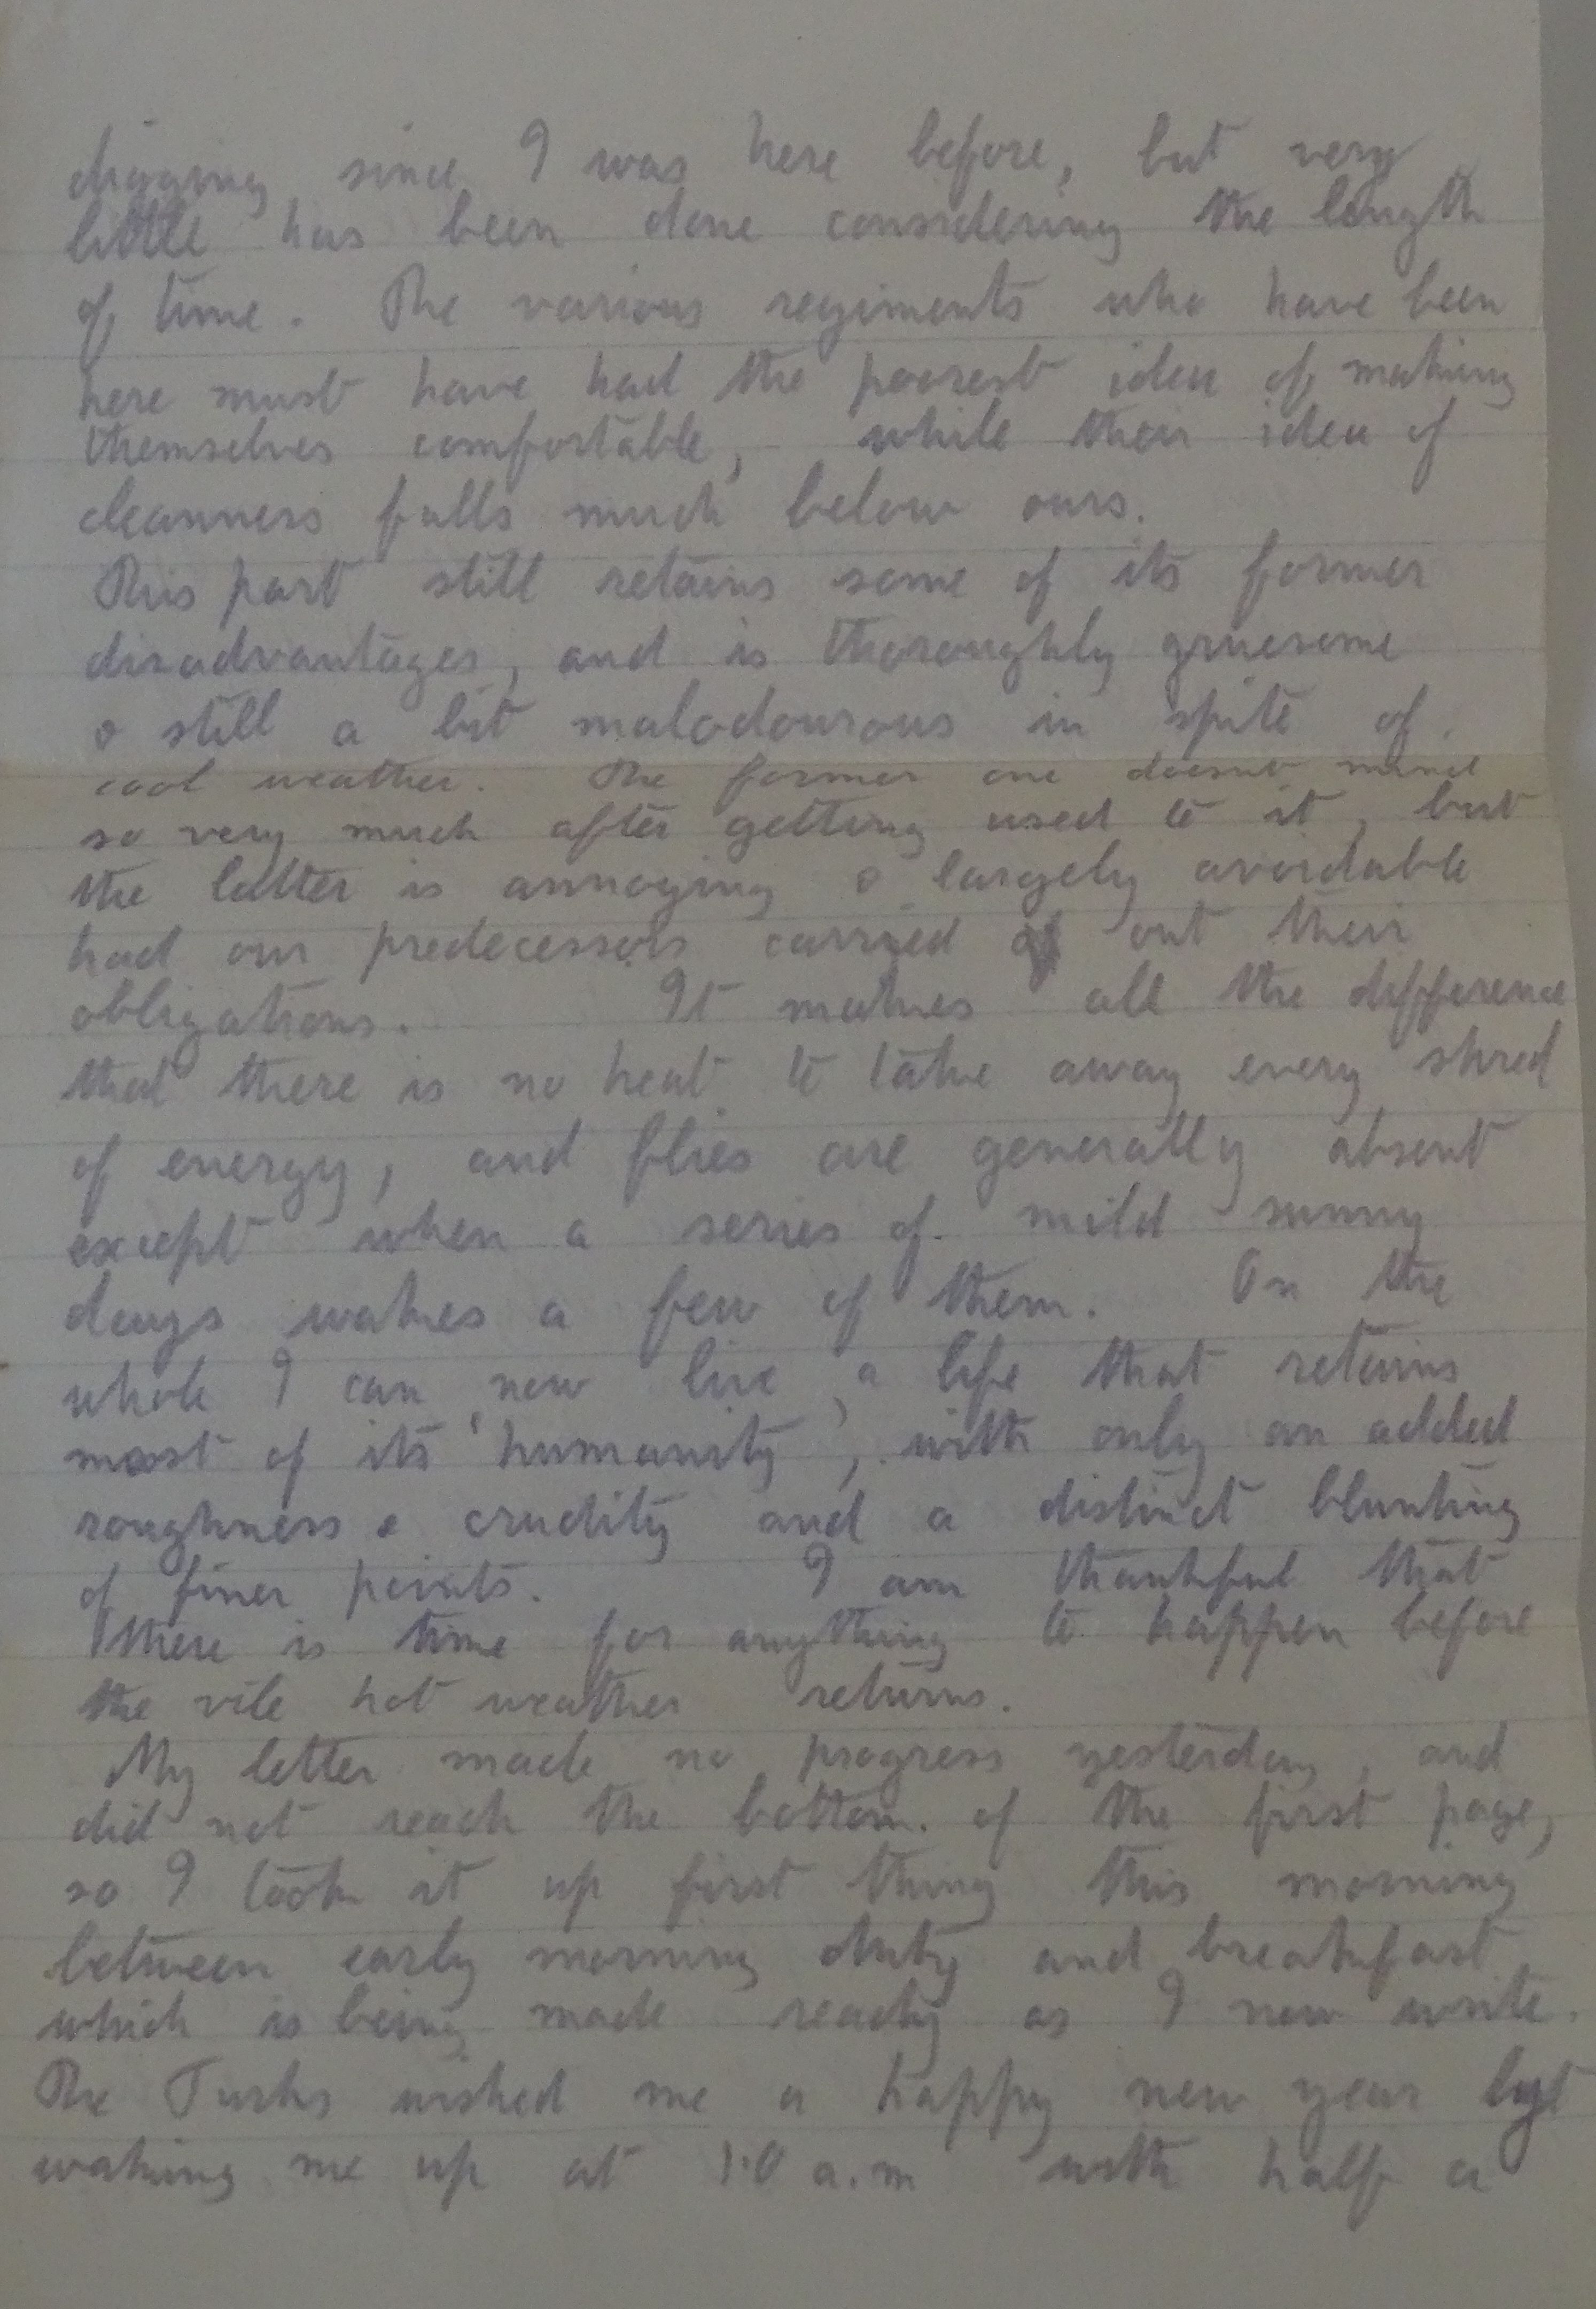 digging since I was here before, but very
little has been done considering the length
of time. The various regiments who have been
here must have had the poorest idea of making
themselves comfortable, while their idea of
cleanness falls much below ours.
This part still retains some of its former
disadvantages, and is thoroughly gruesome
& still a bit malodourous in spite of
cool weather. The former one doesnt mind
so very much after getting used to it, but
the latter is annoying & largely avoidable
had our predecessors carried out their
obligations. It makes all the difference
that there is no heat to take away every shred
of energy, and flies are generally absent
except when a series of mild sunny
days wakes a few of them. On the
whole I can now live a life that retains
most of its 'humanity', with only an added
roughness & crudity and a distinct blunting
of finer points. I am thankful that
there is time for anything to happen before
the vile hot weather returns.
My letter made no progress yesterday, and
did not reach the bottom of the first page,
so I took it up first thing this morning
between early morning duty and breakfast
which is being made ready as I now write.
The Turks wished me a happy new year by
waking me up at 1.0 a.m with half a